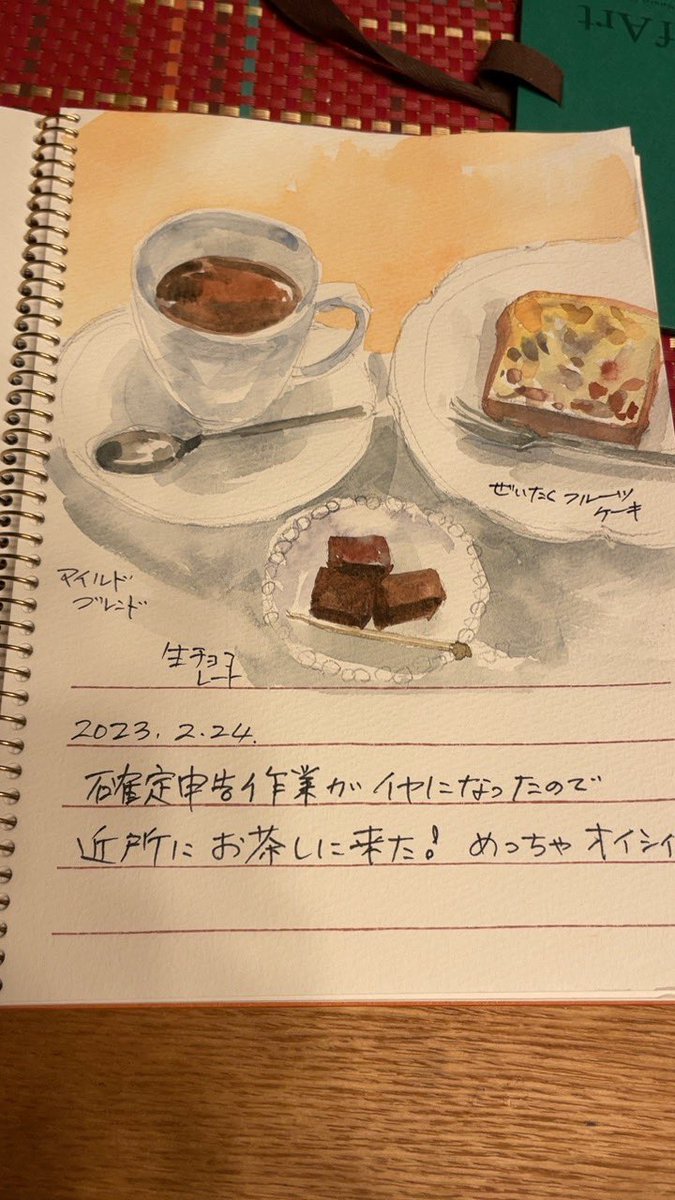 f Art
ぜいたくフルーツ
ケーキ
マイルド
ブレンド
生チョコ
レート
2023.2.24.
確定申告作業がイヤになったので
近所にお茶しに来た! めっちゃオイシイ